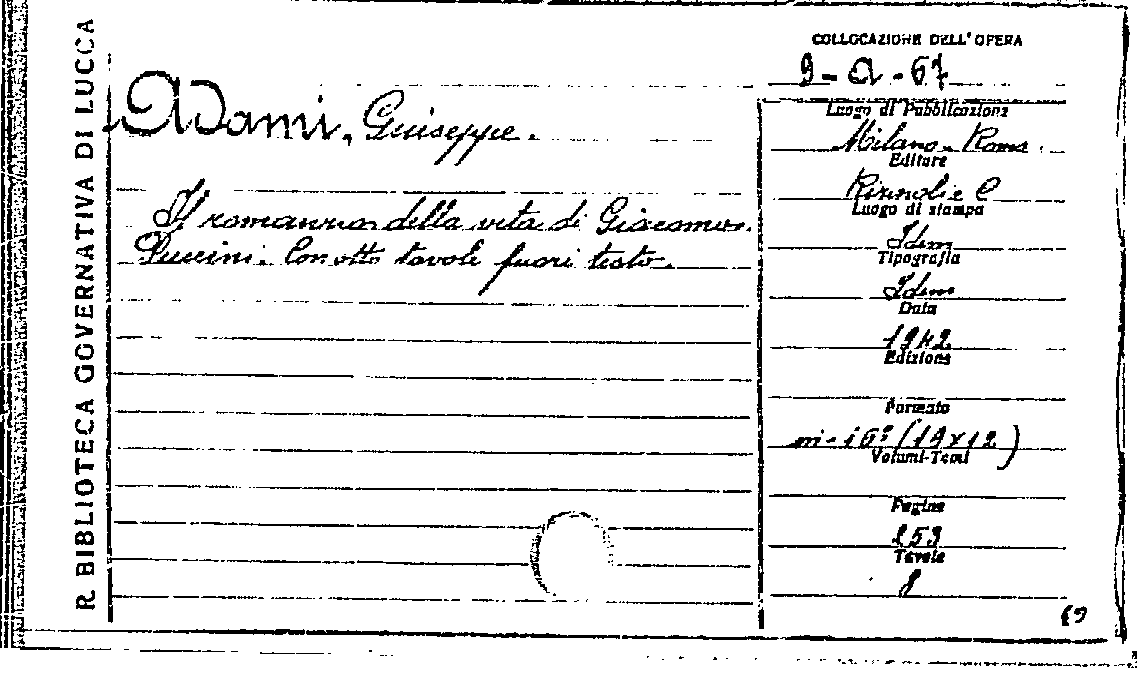 R. BIBLIOTECA GOVERNATIVA DI LUCCA
Adami, Giuseppe.
Il romanzo della vita di Giacomo
Puccini. Con otto tavole fuori testo.
COLLOCAZIONE DELL' OPERA
9-a-67
Luogo di Pubblicazione
Milano-Roma.
Editore
Rizzoli e C
Luogo di stampa
Idem
Tipografia
Idem
Data
1942
Edizione
Formato
in-16° (19x12)
Volumi-Tomi
Pagine
253
Tavole
8